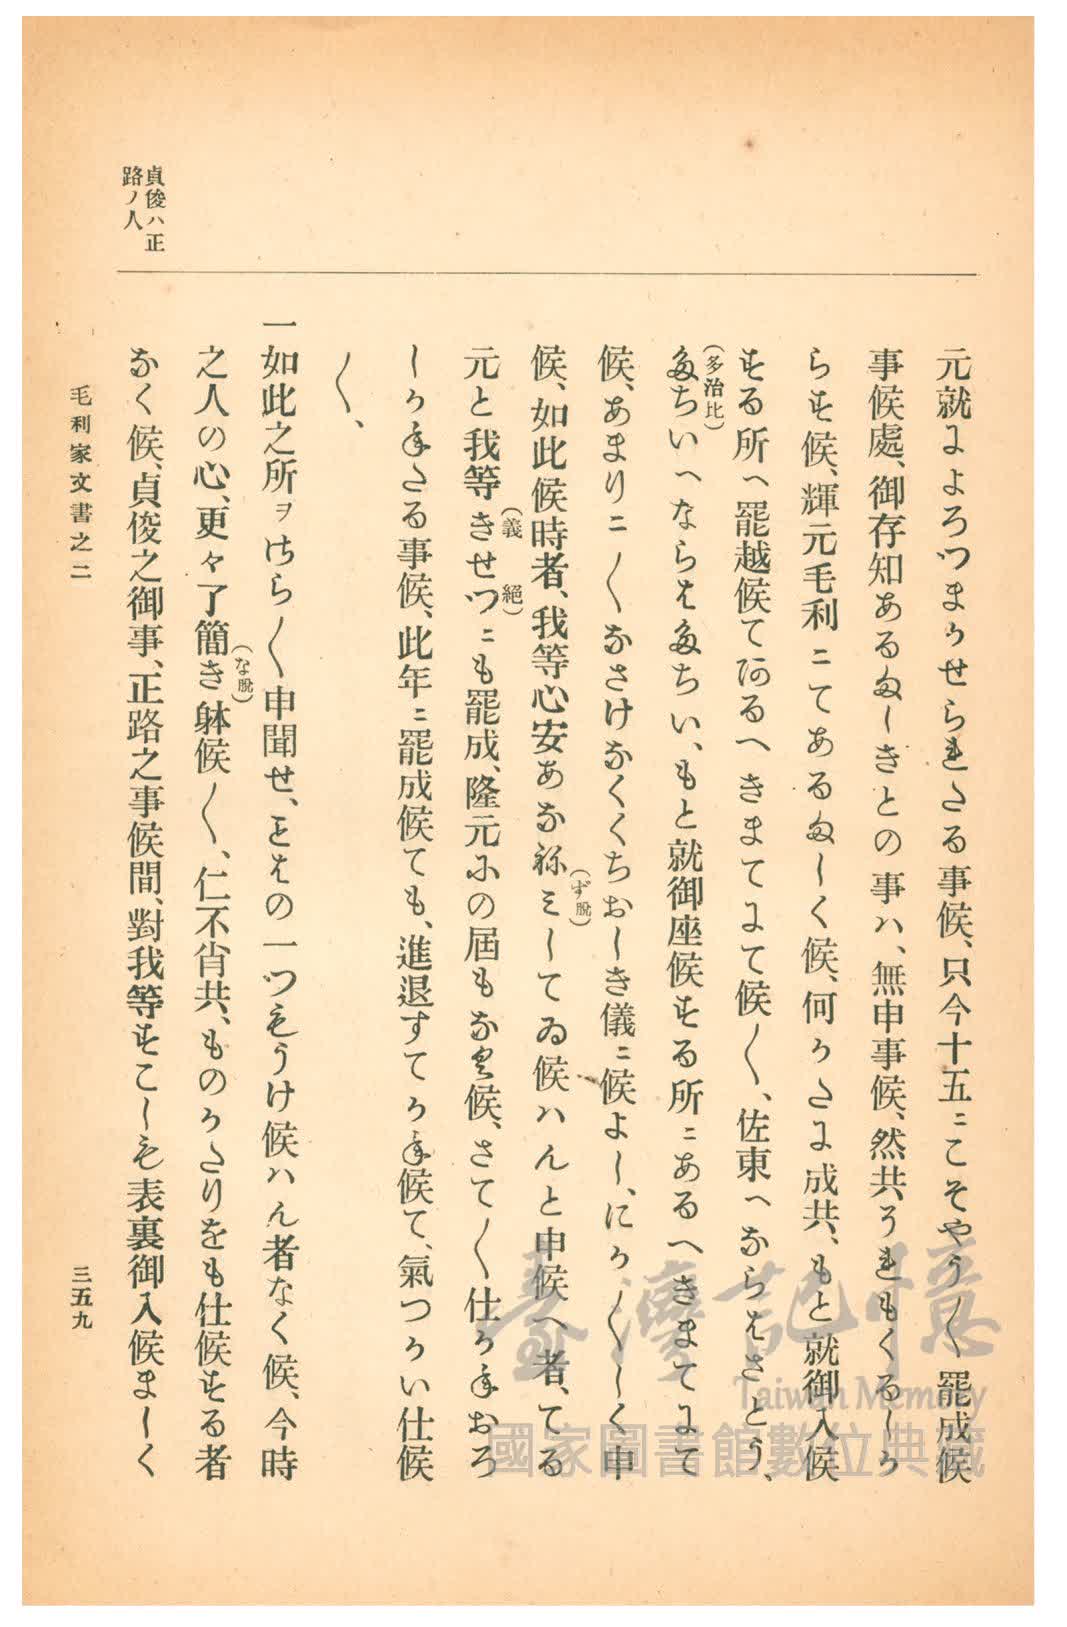 貞俊ハ正
路ノ人
元就によろつまかせられたる事候、只今十五ニこそやう〳〵罷成候
事候處、御存知あるましきとの事ハ、無申事候、然共うれもくるしか
らす候、輝元毛利ニてあるましく候、何かたに成共、もと就御入候
する所へ罷越候て可有るへきまてにて候〳〵、佐東へならはさとう、
(多治比)
たちいへならはたちい、もと就御座候する所ニあるへきまてにて
候、あまりニ〳〵なさけなくくちおしき儀ニ候よし、にか〳〵しく申
候、如此候時者、我等心安あなねミしてゐ候ハんと申候へ者、てる
(ず脱)
元と我等きせつニも罷成、隆元への届もなく候、さて〳〵仕かねおろ
(義絕)
しかねたる事候、此年ニ罷成候ても、進退すてかね候て、氣つかい仕候
〳〵、
一如此之所ヲけら〳〵申聞せ、ことはの一つもうけ候ハん者なく候、今時
之人の心、更々了簡き躰候〳〵、仁不肖共、ものかたりをも仕候する者
(な脫)
なく候、貞俊之御事、正路之事候間、對我等すこしも表裏御入候ましく
毛利家文書之二
三五九
臺灣記憶
Taiwan Memory
國家圖書館數位典藏